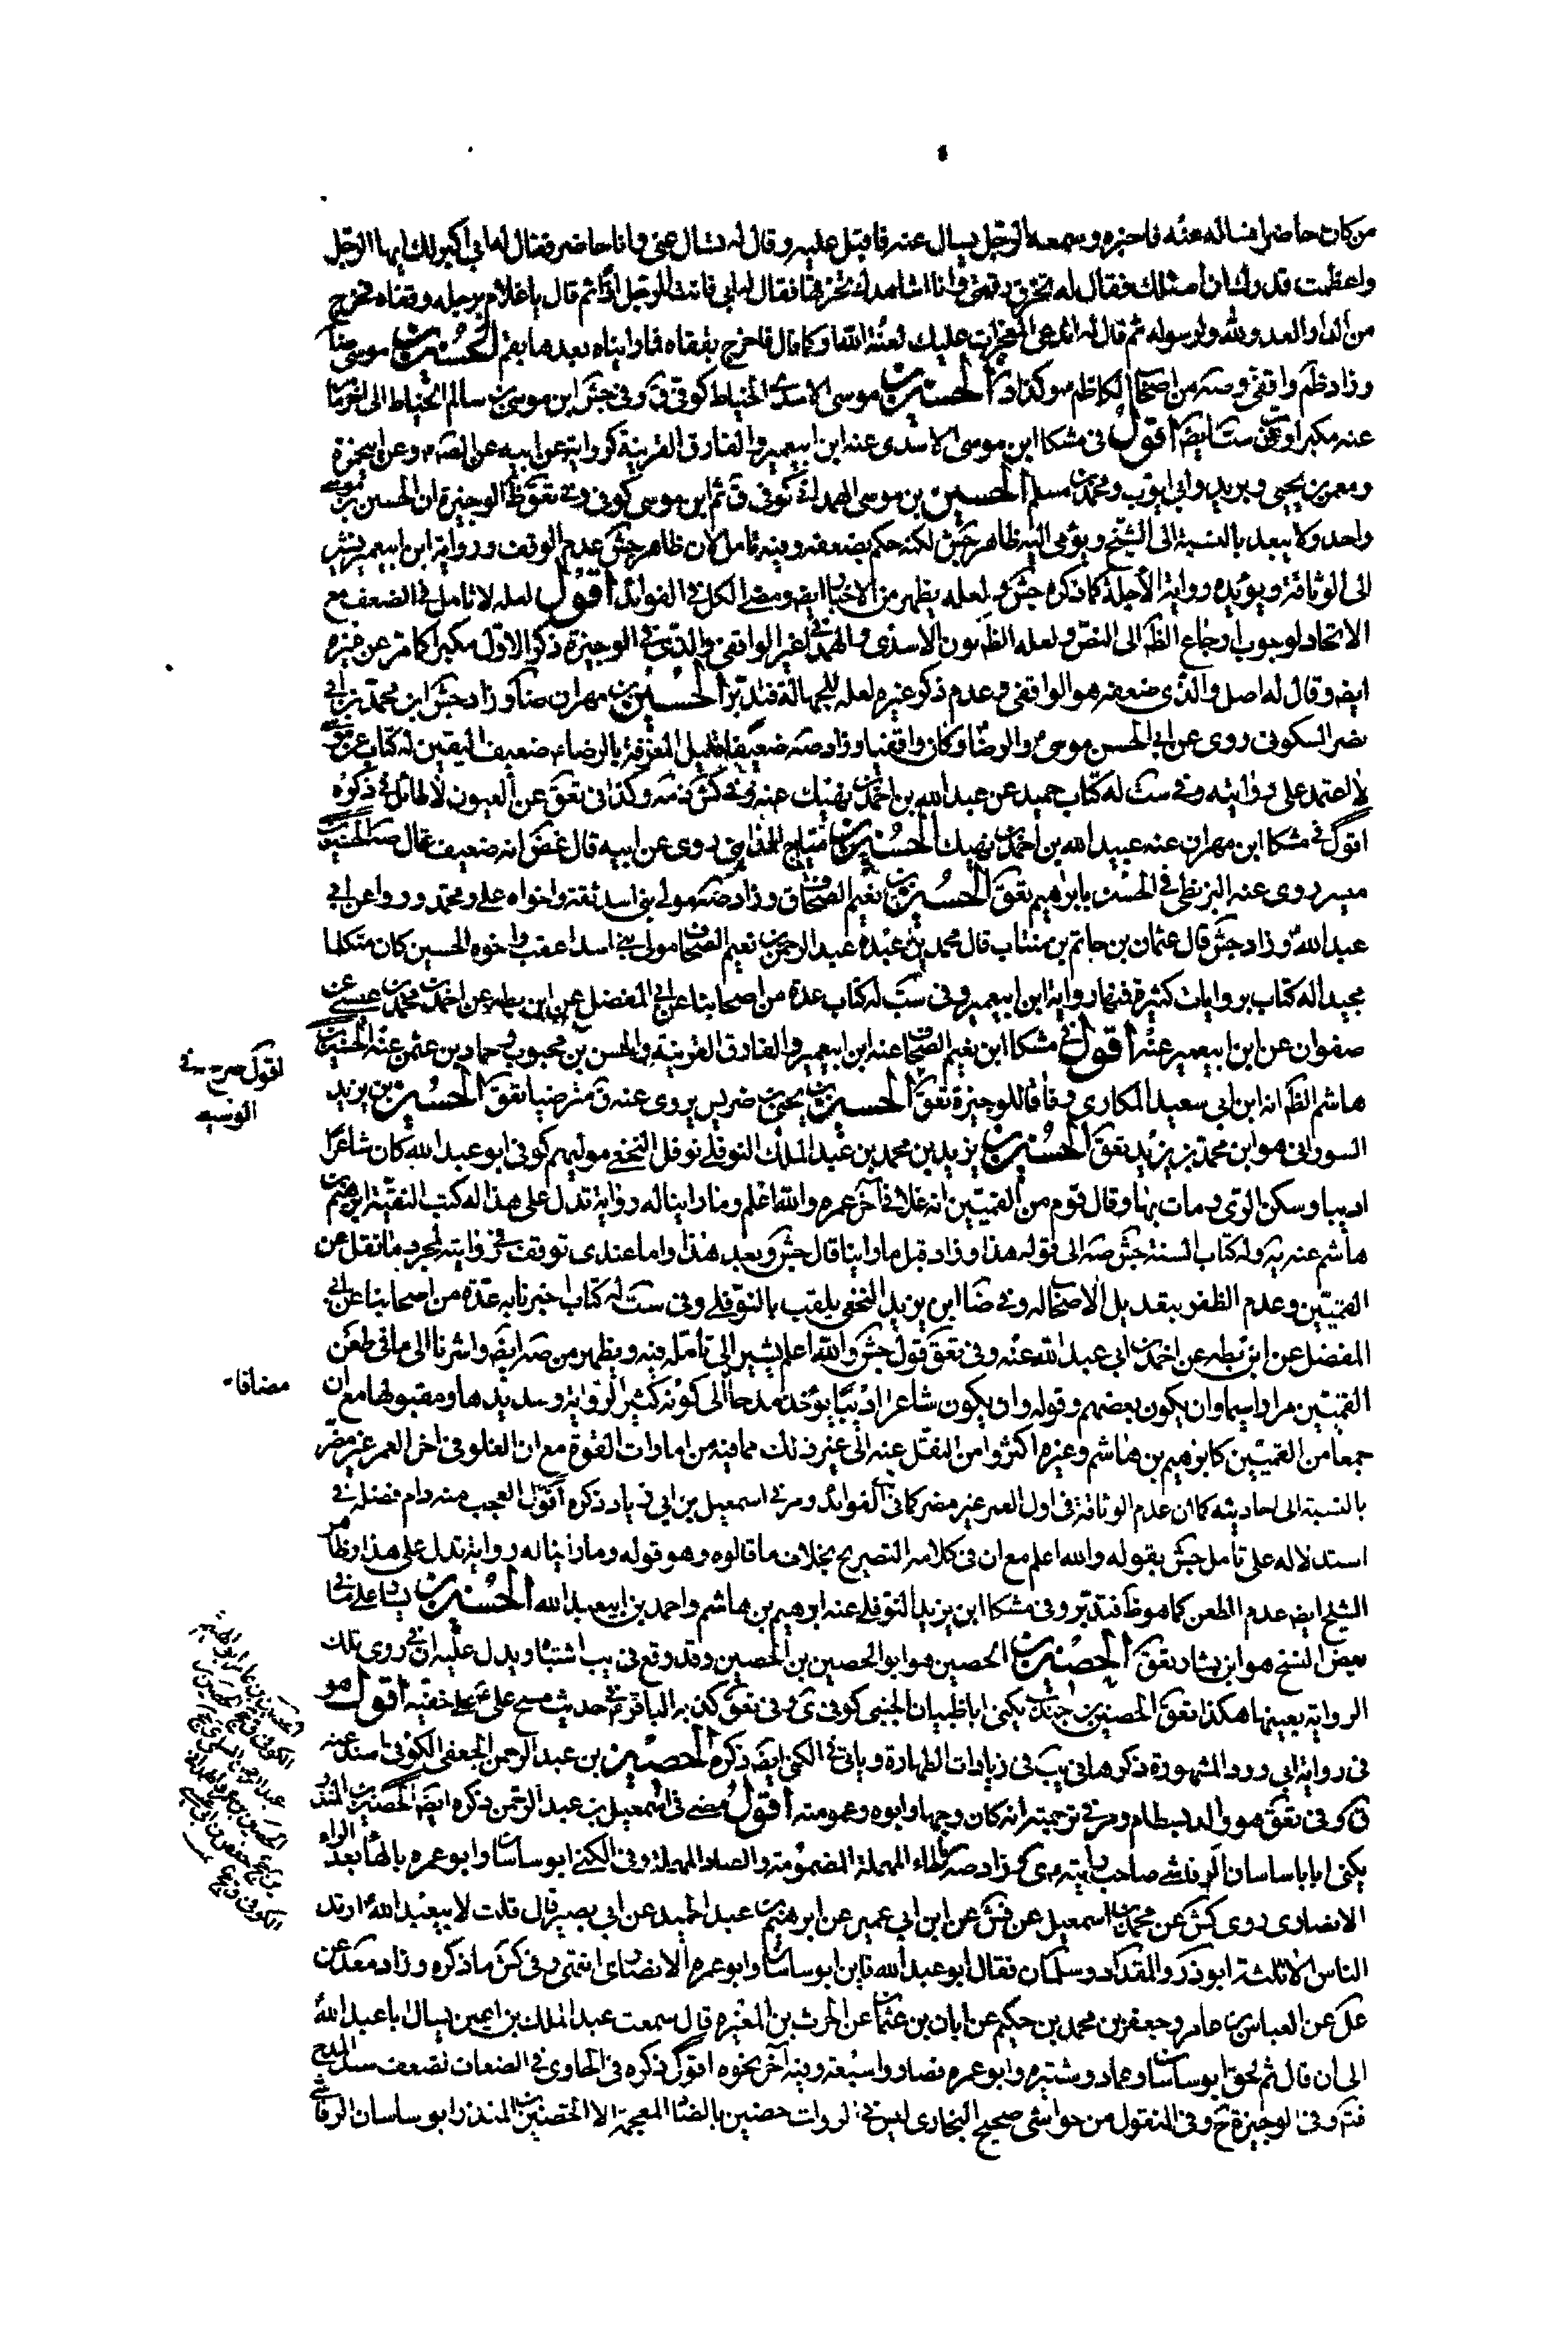 من كان حاضرا فساله عنه فاخبره وسمعه الرجل يسال عنه فاقبل عليه وقال له تسال عنى وانا حاضر فقال له ابى اكبر لك ايها الرجل
واعظمت قدرك ان اسئلك فقال له تخرق رقعتى وانا اشاهدك تخرقها فقال له ابى فانت الرجل اذا ثم قال يا غلام برجله وقفاه فخرج
من الدار العدو لله ولرسوله ثم قال له اتدعى المعجزات عليك لعنة الله او كما قال فاخرج بقفاه فما رايناه بعدها بقم الحسين بن موسى ضا
وزاد ظم واقفى وصه من اصحاب الكاظم وكذا د الحسين بن موسى الاسدى الحناط كوفى ق وفى جش ابن موسى بن سالم الحناط الى اخر ما
عنه مكبرا وفى ست ايضا اقول فى مشكا ابن موسى الاسدى عنه ابن ابيعمير والفارق القرينة كروايته عن ابيه عن الصه م وعن ابى حمزة
ومعمر بن يحيى وبريد وابى ايوب ومحمد بن مسلم الحسين بن موسى الهمدانى كوفى ق ثم ابن موسى كوفى وفى تعق ظ الوجيزة ان الحسين بن موسى
واحد ولا يبعد بالنسبة الى الشيخ ويؤمى اليه ظاهر جش لكنه حكم بضعفه وفيه تامل لان ظاهر جش عدم الوقف ورواية ابن ابيعمير تشير
الى الوثاقة ويؤيده رواية الاجلة كما ذكره جش ولعله يظهر من الاخبار ايضا ومضى الكل فى الفوائد اقول لعله لا تامل فى الضعف مع
الاتحاد لوجوب ارجاع الظه الى النص ولعله الظه كون الاسدى والهمدانى غير الواقفى والذى فى الوجيزة ذكر الاول مكبرا كما مر عن غيره
ايضا وقال له اصل والذى ضعفه هو الواقفى وعدم ذكر غيره لعله للجهالة فتدبر الحسين بن مهران ضا وزاد جش ابن محمد بن ابى
نصر السكونى روى عن ابى الحسن موسى م والرضا وكان واقفيا وزاد صه ضعيفا قليل المعرفة بالرضا م ضعيف اليقين له كتاب عن موسى
لا اعتمد على روايته وفى ست له كتاب حميد عن عبد الله بن احمد بن نهيك عنه وفى كش ذمه وكذا فى تعق عن العيون لا طائل فى ذكره
اقول فى مشكا ابن مهران عنه عبيد الله بن احمد بن نهيك الحسين بن مياح المداينى روى عن ابيه قال غض انه ضعيف غال صه الحسين بن
ميسر روى عنه البزنطى فى الحسن بابراهيم تعق الحسين بن نعيم الصحاف ق وزاد صه مولى بنى اسد ثقة واخواه على ومحمد رووا عن ابى
عبد الله وزاد جش قال عثمان بن حاتم بن منتاب قال محمد بن عبده عبد الرحمن بن نعيم الصحاف مولى بنى اسد اعقب واخوه الحسين كان متكلما
مجيدا له كتاب بروايات كثيرة فمنها رواية ابن ابيعمير وفى ست له كتاب عدة من اصحابنا عن ابى المفضل عن ابن بطه عن احمد بن محمد بن عيسى عن
صفوان عن ابن ابيعمير عنه اقول فى مشكا ابن نعيم الصحاف عنه ابن ابيعمير والفارق القرينة والحسن بن محبوب وحماد بن عثمن عنه الحسين بن
هاشم الظه انه ابن ابى سعيد المكارى وفاقا للوجيزة تعق الحسين بن يحيى بن ضريس يروى عنه ق مترضيا تعق الحسين بن يزيد
السورانى هو ابن محمد بن يزيد تعق الحسين بن يزيد بن محمد بن عبد الملك النوفلى نوفل النخعى موليهم كوفى ابو عبد الله كان شاعرا
اديبا وسكن الرى ومات بها وقال قوم من القميين انه غلا فى آخر عمره والله اعلم وما راينا له رواية تدل على هذا له كتب التقية ابرهيم بن
هاشم عنه به وله كتاب السنة جش صه الى قوله هذا وزاد قبل ما راينا قال جش وبعد هذا واما عندى توقف فى روايته لمجرد ما نقل عن
القميين وعدم الظفر بتعديل الاصحاب له وفى ضا ابن يزيد النخعى يلقب بالنوفلى وفى ست له كتاب اخبرنا به عدة من اصحابنا عن ابى
المفضل عن ابن بطه عن احمد بن ابى عبد الله عنه وفى تعق قول جش والله اعلم يشير الى تامله فيه ويظهر من صه ايضا واشرنا الى ما فى طعن
القميين مرارا سيما وان يكون بعضهم وقوله وان يكون شاعرا اديبا يؤخذ مدحا الى كونه كثير الرواية وسديدها ومقبولها مع ان
جمعا من القميين كابرهيم بن هاشم وغيره اكثروا من النقل عنه الى غير ذلك مما فيه من امارات القوة مع ان الغلو فى اخر العمر غير مضر
بالنسبة الى احاديثه كما ان عدم الوثاقة فى اول العمر غير مضر كما فى الفوائد ومر فى اسمعيل بن ابى زياد ذكره اقول العجب منه دام فضله فى
استدلاله على تامل جش بقوله والله اعلم مع ان فى كلامه التصريح بخلاف ما قالوه وهو قوله وما راينا له رواية تدل على هذا وظاهر
الشيخ ايضا عدم الطعن كما هو ظ فتدبر وفى مشكا ابن يزيد النوفلى عنه ابرهيم بن هاشم واحمد بن ابيعبد الله الحسين بن يسار على ما فى
بعض النسخ هو ابن بشار تعق الحصين بن الحصين هو ابو الحصين بن الحصين وقد وقع فى يب اشتباه ويدل عليه ان فى روى تلك
الرواية بعينها هكذا تعق الحصين بن جندب يكنى ابا ظبيان الجنبى كوفى ى وفى تعق كذبه الباقر م فى حديث مسح على م على خفيه اقول هو
فى رواية ابى ورد المشهورة ذكرها فى يب فى زيادات الطهارة وياتى فى الكنى ايضا ذكره الحصين بن عبد الرحمن الجعفى الكوفى اسند عنه
ق وفى تعق هو والد بسطام ومر فى ترجمته انه كان وجيها وابوه وعمومته اقول مضى فى اسمعيل بن عبد الرحمن ذكره ايضا الحصين بن المنذر
يكنى ابا ساسان الرقاشى صاحب رايته م ى وزاد صه بالحاء المهملة المضمومة والصاد المهملة وفى الكنى ابو ساسان وابو عمره بالهاء بعد الراء
الانصارى روى كش عن محمد بن اسمعيل عن فش عن ابن ابى عمير عن ابرهيم بن عبد الحميد عن ابى بصير قال قلت لابيعبد الله ارتد
الناس الا ثلثة ابو ذر والمقداد وسلمان فقال ابو عبد الله فاين ابو ساسان وابو عمره الانصارى انتهى وفى كش ما ذكره وزاد محمد عن
على عن العباس بن عامر وجعفر بن محمد بن حكيم عن ابان بن عثمان عن الحرث بن المغيره قال سمعت عبد الملك بن اعين يسال ابا عبد الله
الى ان قال ثم لحق ابو ساسان وعمار وشتيره وابو عمره فصاروا سبعة وفيه آخر نحوه اقول ذكره فى الحاوى فى الضعاف لضعف سند المدح
فتم وفى الوجيزة ح وفى المنقول من حواشى صحيح البخارى ليس فى الروات حضين بالضاد المعجمة الا الحضين بن المنذر ابو ساسان الرقاشى
اقول صرح فى
الوسيط
مضافا